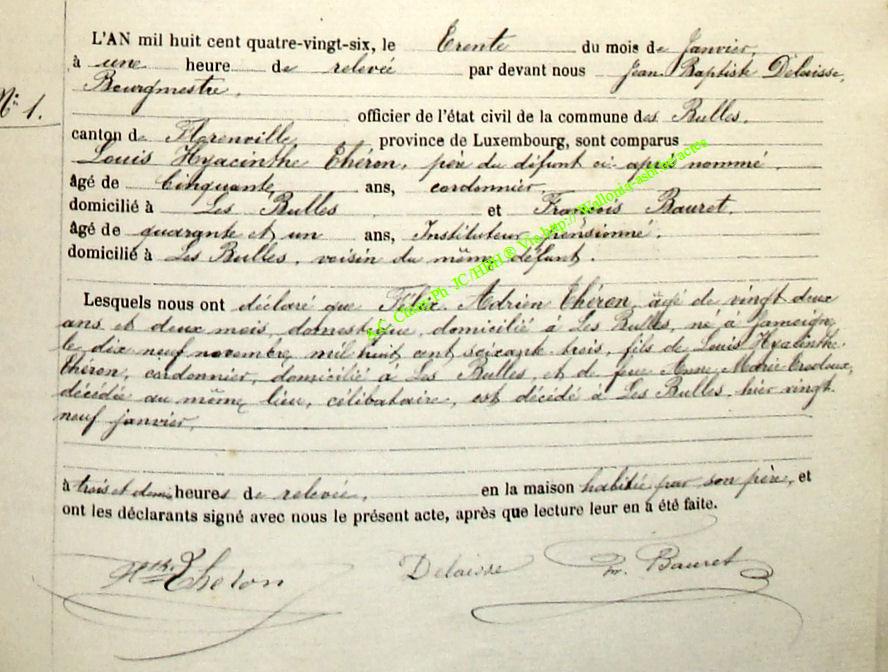 L'AN mil huit cent quatre-vingt-six, le Trente du mois de Janvier,
à une heure de relevée par devant nous Jean Baptiste Delaisse,
Bourgmestre,
N° 1.
officier de l'état civil de la commune des Bulles,
canton de Florenville province de Luxembourg, sont comparus
Louis Hyacinthe Théron, père du défunt ci-après nommé,
âgé de Cinquante ans, cordonnier,
domicilié à Les Bulles et François Bauret,
âgé de quarante et un ans, Instituteur pensionné,
domicilié à Les Bulles, voisin du même défunt.
Lesquels nous ont déclaré que Félix Adrien Théron, âgé de vingt deux
ans et deux mois, domestique, domicilié à Les Bulles, né à Jamoigne,
le dix neuf novembre mil huit cent soixante trois, fils de Louis Hyacinthe
Théron, cordonnier, domicilié à Les Bulles, et de feue Anne Marie
décédée au même lieu, célibataire, est décédé à Les Bulles, hier vingt
neuf janvier,
à trois et demie heures de relevée, en la maison habitée par son père, et
ont les déclarants signé avec nous le présent acte, après que lecture leur en a été faite.
Théron Delaisse Bauret
JC/HBH ® Via http://Wallonia-asbl